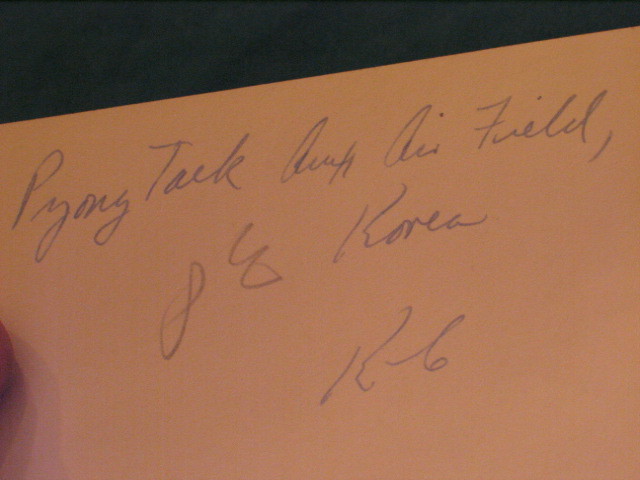 Pyong Taek Aux Air Field,
Korea
K-6